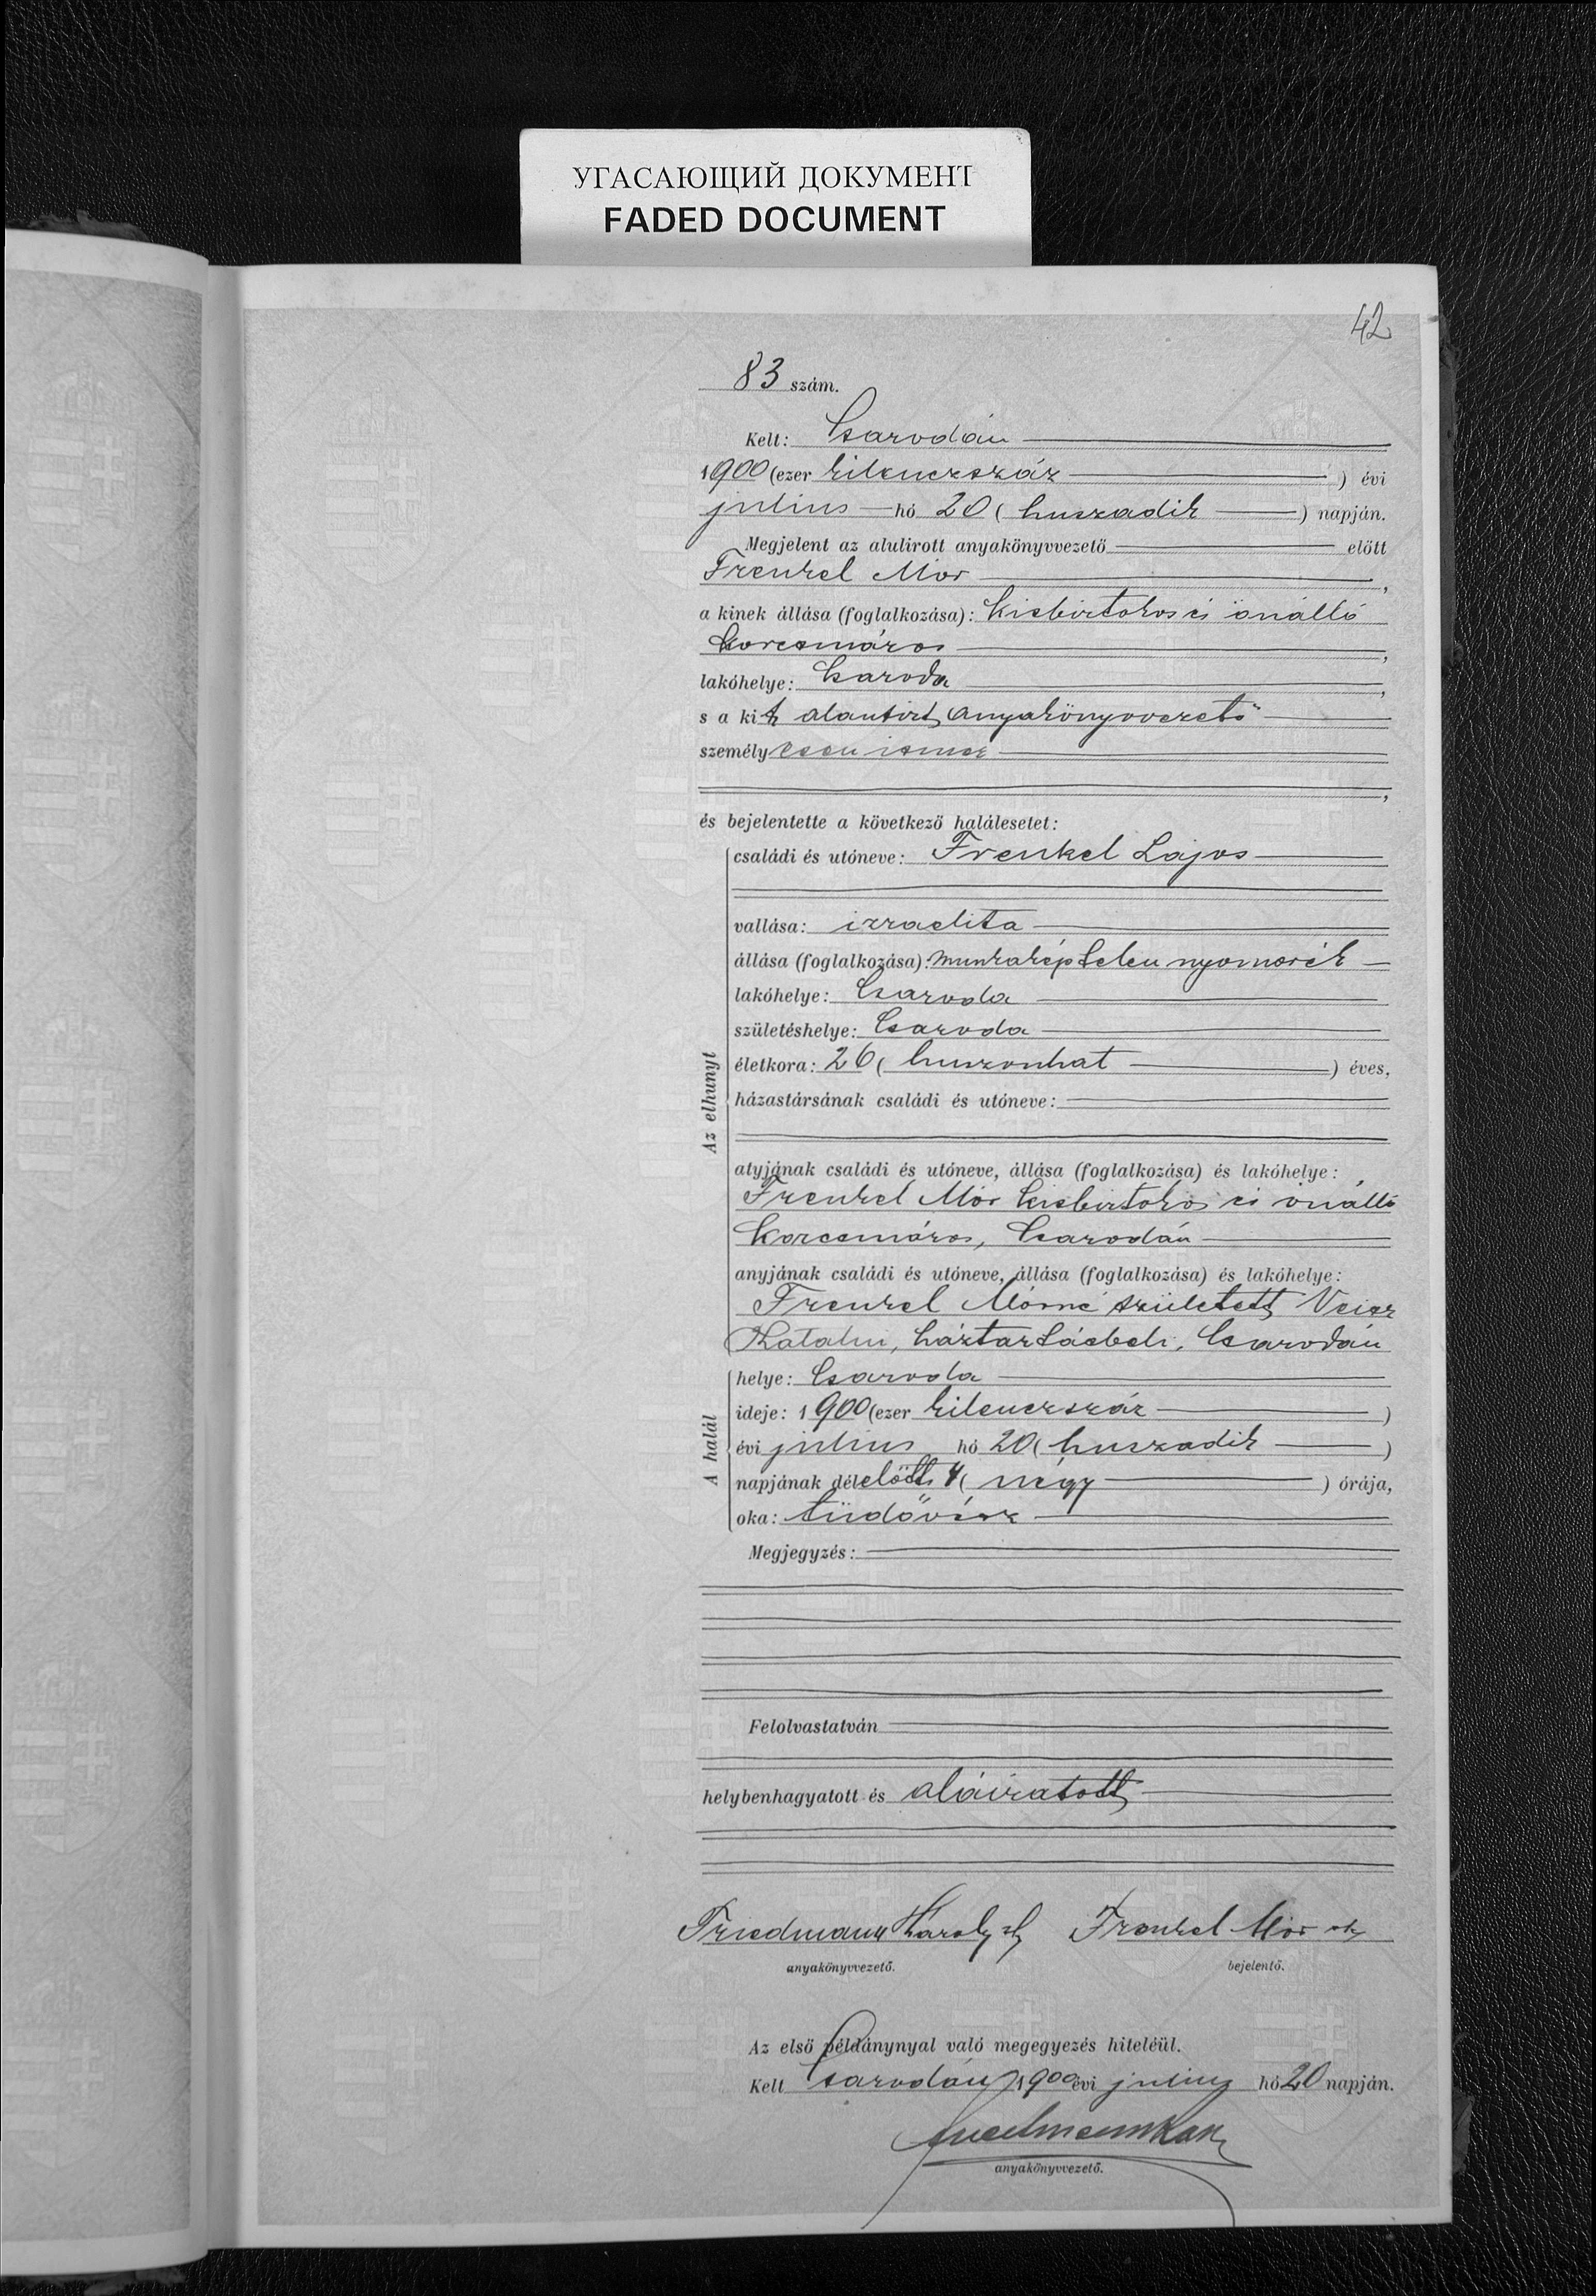 УГАСАЮЩИЙ ДОКУМЕНТ
FADED DOCUMENT
42
83 szám.
Kelt: Csarodán
1900 (ezer kilenczszáz) évi
julius hó 20 (huszadik) napján.
Megjelent az alulirott anyakönyvvezető előtt
Frenkel Mór,
a kinek állása (foglalkozása): kisbirtokos és önálló
korcsmáros,
lakóhelye: Csaroda,
s a kit alantirt anyakönyvvezető
személyesen ismer
,
és bejelentette a következő halálesetet:
Az elhunyt
családi és utóneve: Frenkel Lajos
vallása: izraelita
állása (foglalkozása): munkaképtelen nyomorék
lakóhelye: Csaroda
születéshelye: Csaroda
életkora: 26 (huszonhat) éves,
házastársának családi és utóneve:
atyjának családi és utóneve, állása (foglalkozása) és lakóhelye:
Frenkel Mór kisbirtokos és önálló
korcsmáros, Csarodán
anyjának családi és utóneve, állása (foglalkozása) és lakóhelye:
Frenkel Mórné született Veisz
Katalin, háztartásbeli, Csarodán
A halál
helye: Csaroda
ideje: 1900 (ezer kilenczszáz)
évi julius hó 20 (huszadik)
napjának délelőtt 4 (négy) órája,
oka: tüdővész
Megjegyzés:
Felolvastatván
helybenhagyatott és aláiratott
Friedmann Károly sk Frenkel Mór sk
anyakönyvvezető. bejelentő.
Az első példánynyal való megegyezés hiteléül.
Kelt Csarodán 1900 évi julius hó 20 napján.
anyakönyvvezető.